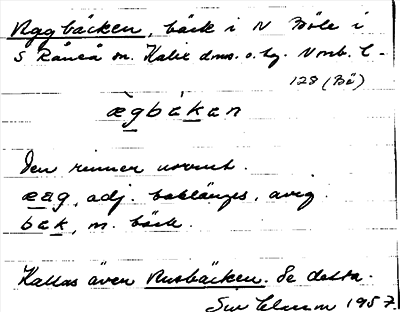 Aggbäcken, bäck i N Böle i
S Råneå sn. Kalix dms. o. hg. Norrb. l -
128 (Bö)
ægbækən
Den rinner norrut.
æəg, adj. baklänges, avig.
bɛk, m. bäck.
Kallas även Rusbäcken. Se detta.
1957.